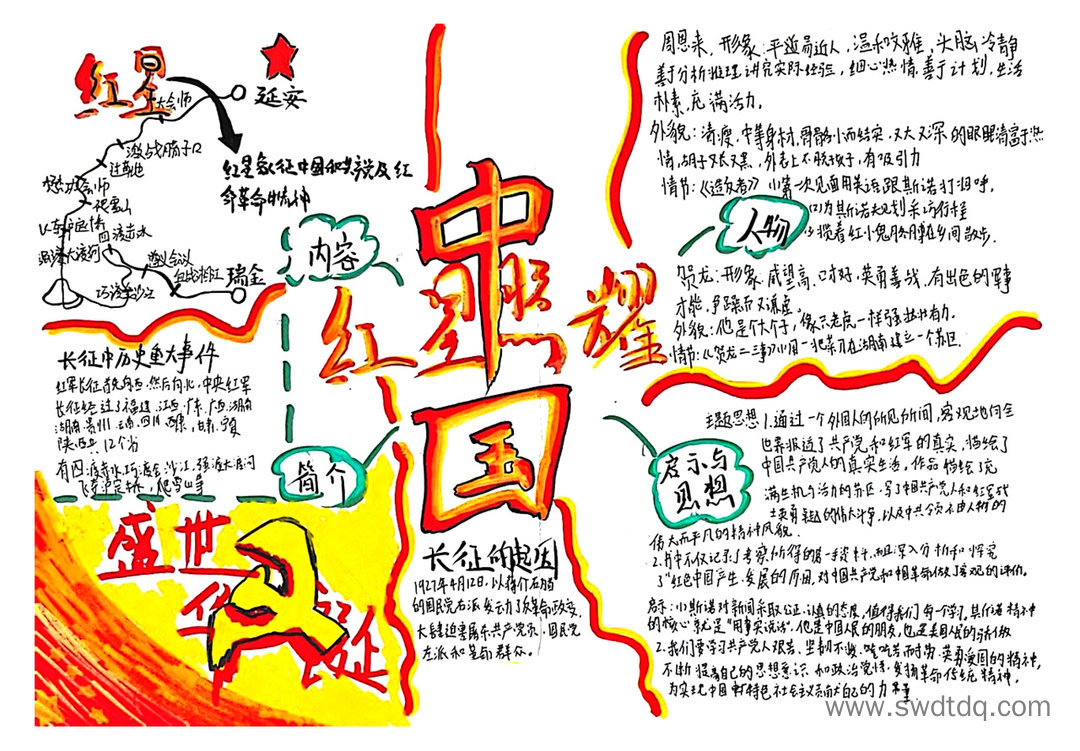 红星
大会师
延安
激战腊子口
过草地
爬雪山
四渡赤水
遵义会议
瑞金
巧渡金沙江
红星象征中国和共产党及红
命革命的精神
内容
长征中历史重大事件
长征经过了福建、江西、广东、广西、湖南
陕西共12个省
飞夺泸定桥、爬雪山等
简介
盛世
华诞
红星照耀
中国
长征的起因
1927年4月12日,以蒋介石为首
的国民党右派发动了反革命政变,
大肆迫害屠杀共产党员、国民党
左派和革命群众。
周恩来,形象:平易近人,温和文雅,头脑冷静
善于分析推理,讲究实际经验,细心热情,善于计划,生活
朴素,充满活力。
外貌:清瘦,中等身材,骨骼小而结实,又大又深的眼睛富于热
情,胡子又长又黑,外表上不脱孩子,有吸引力
情节:《造反者》(1)第一次见面用英语跟斯诺打招呼。
(2)为斯诺计划采访行程
(3)搅着红小鬼肩膀在乡间散步。
人物
贺龙:形象:威望高、口才好,英勇善战,有出色的军事
才能,争躁而又谦虚。
外貌:他是个大个子,像只老虎一样强壮有力。
情节:《贺龙二三事》(1)用一把菜刀在湖南建立一个苏区.
启示与
思想
主题思想 1.通过一个外国人的所见所闻,客观地向全
世界报道了共产党和红军的真实,描绘了
中国共产党人的真实生活。作品描绘了充
满生机与活力的苏区,写了中国共产党人和红军战
士英勇卓越的伟大斗争,以及中共领袖人物的
伟大而平凡的精神风貌.
2.书中不仅记录了考察所得的第一手资料,而且深入分析和探究
了“红色中国”产生、发展的原因,对中国共产党和中国革命做了客观的评价。
启示:1.斯诺对新闻采取公正、认真的态度,值得我们每个学习。其斯诺精神
的核心就是“用事实说话”,他是中国人民的朋友,也是美国人民的骄傲
2.我们要学习共产党人艰苦、坚韧不拔、吃苦而耐劳、英勇爱国的精神,
不断提高自己的思想意识和政治觉悟,发扬革命传统精神,
为实现中国特色社会主义贡献自己的力量
www.swdtdq.com